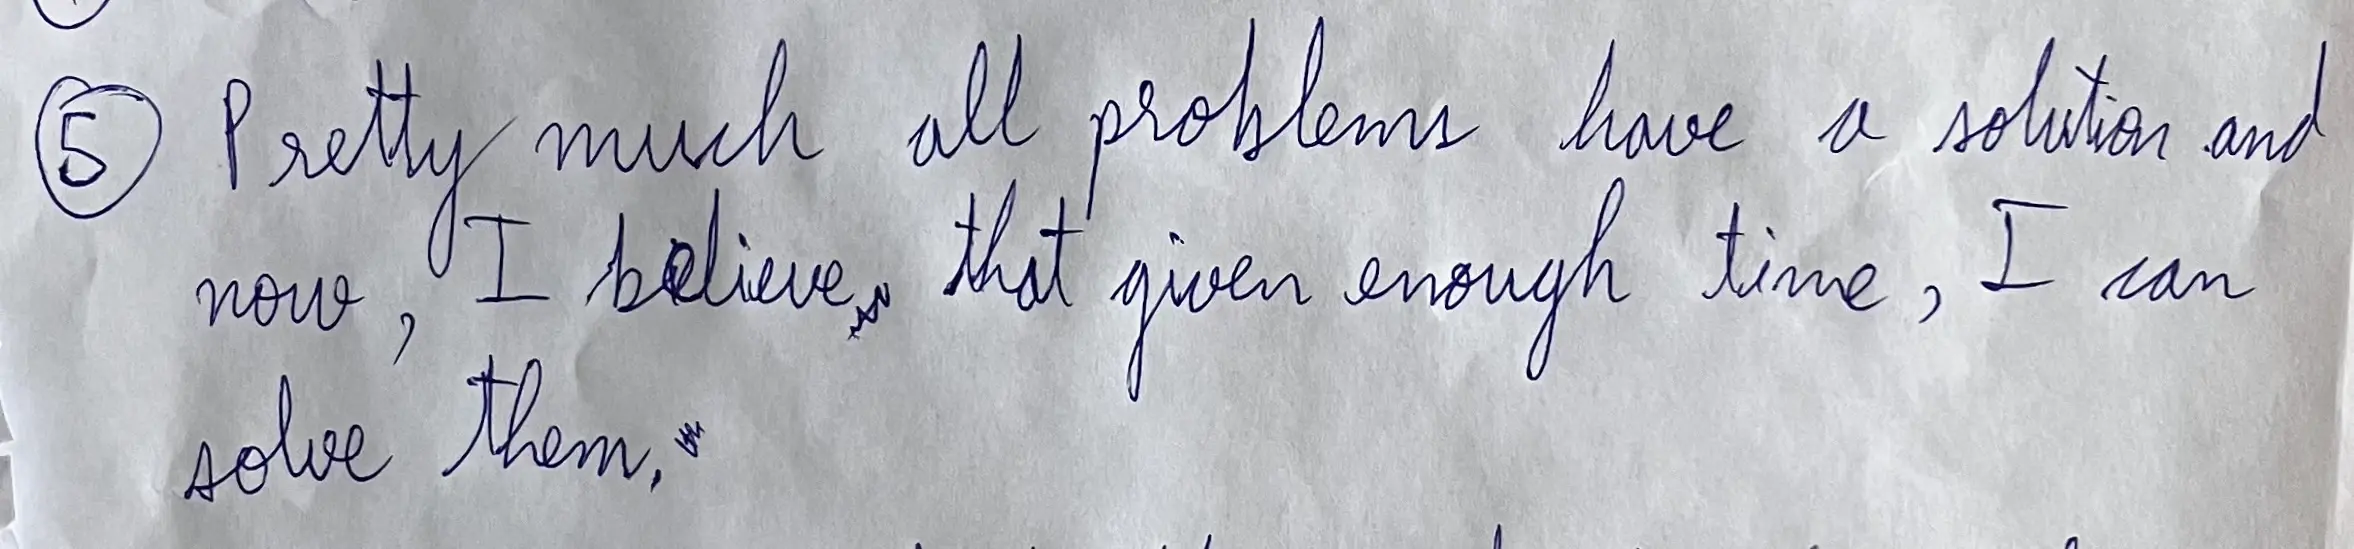 5 Pretty much all problems have a solution and
now, I believe, that given enough time, I can
solve them.